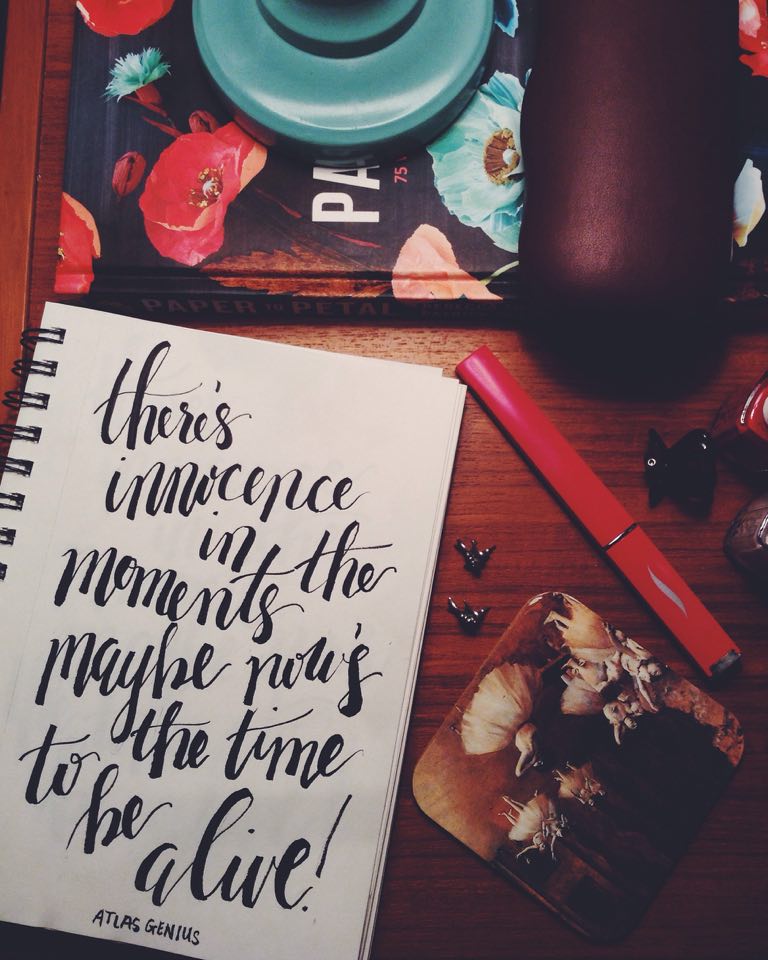 PA
75
PAPER TO PETAL
there's
innocence
in the
moments
maybe now's
the time
to be
alive!
ATLAS GENIUS